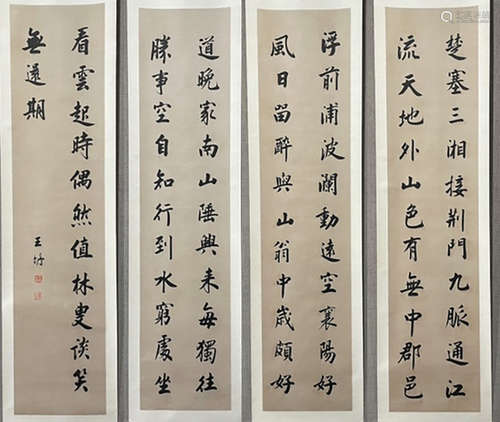 楚塞三湘接荆門九脈通江
流天地外山色有無中郡邑
浮前浦波瀾動遠空襄陽好
風日留醉與山翁中歲頗好
道晚家南山陲興來每獨往
勝事空自知行到水窮處坐
看雲起時偶然值林叟談笑
無還期
王垿